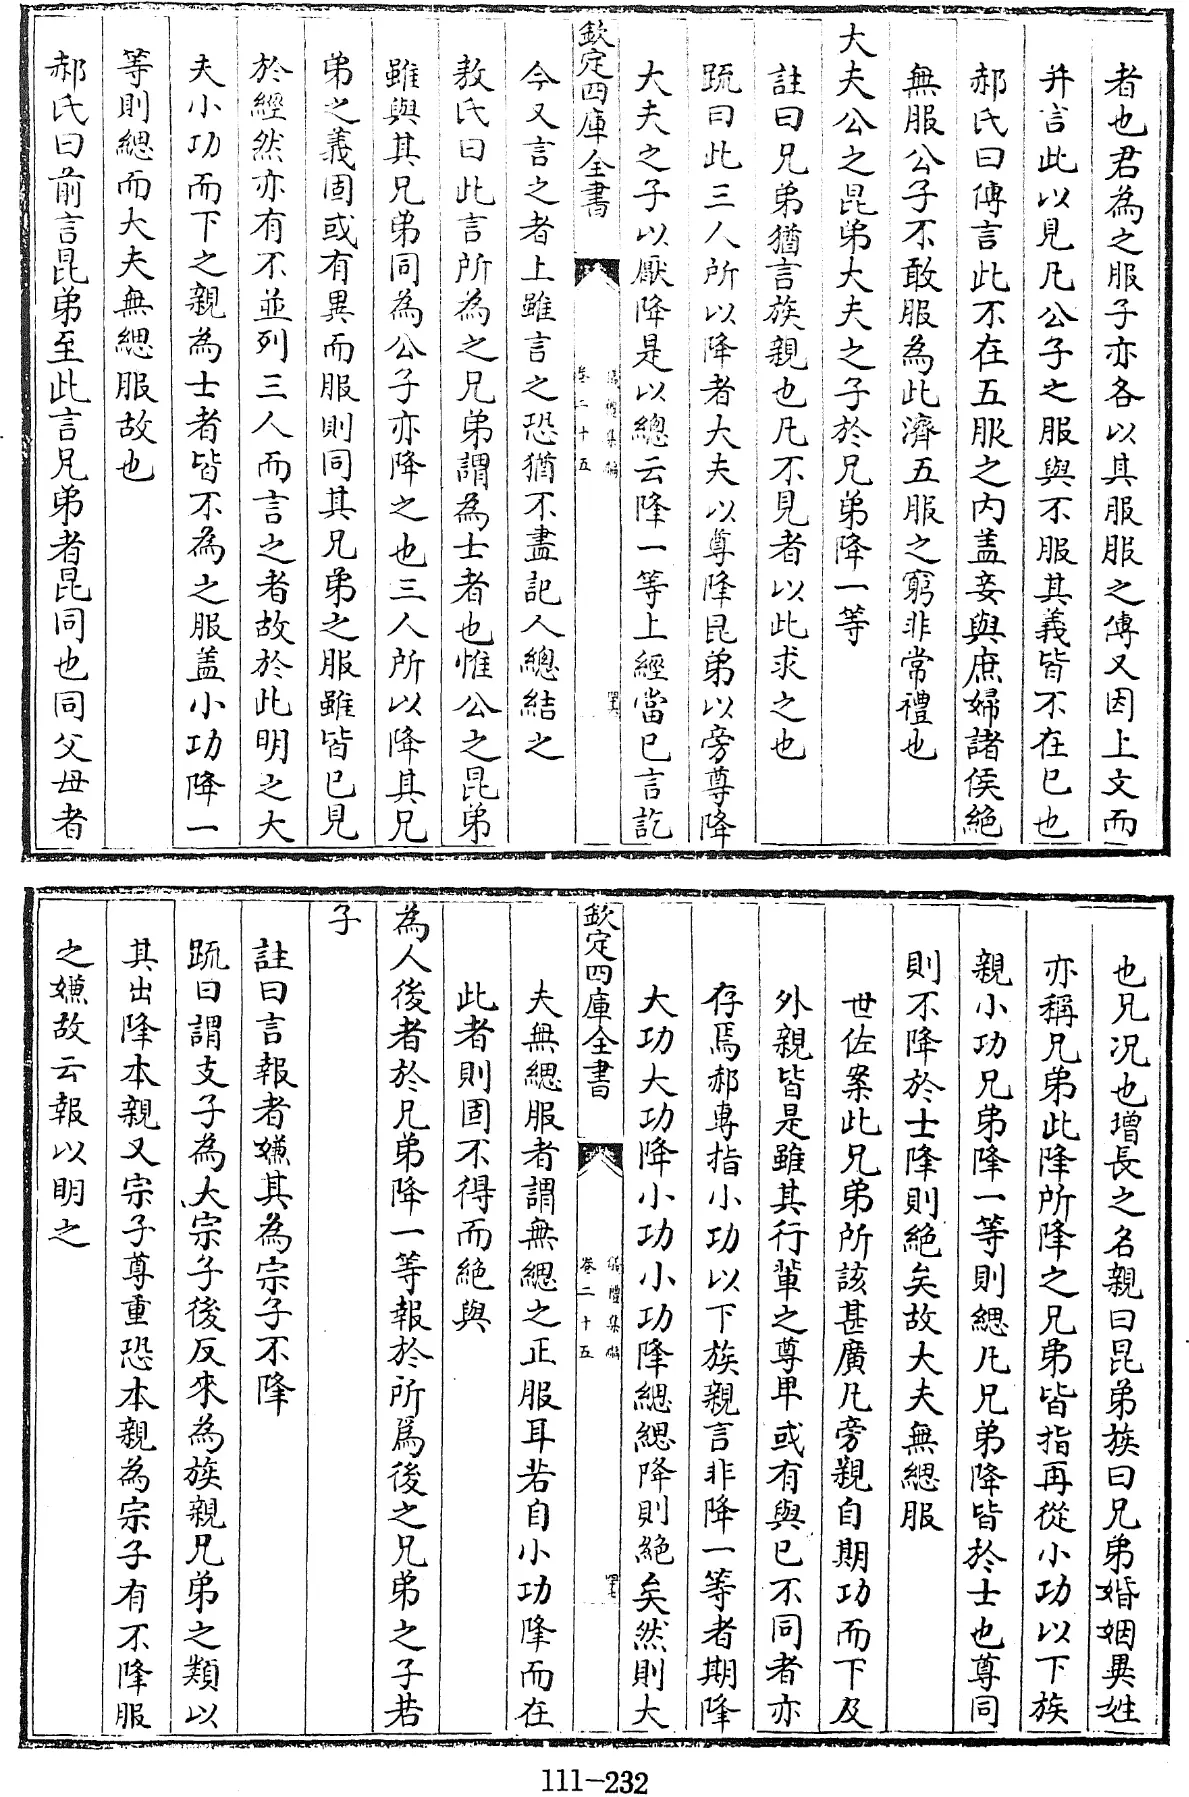 者也君為之服子亦各以其服服之傳又因上文而
并言此以見凡公子之服與不服其義皆不在已也
郝氏曰傳言此不在五服之内盖妾與庶婦諸侯絶
無服公子不敢服為此濟五服之窮非常禮也
大夫公之昆弟大夫之子於兄弟降一等
註曰兄弟猶言族親也凡不見者以此求之也
疏曰此三人所以降者大夫以尊降昆弟以旁尊降
大夫之子以厭降是以總云降一等上經當已言訖
欽定四庫全書
儀禮集編
卷二十五
今又言之者上雖言之恐猶不盡記人總結之
敖氏曰此言所為之兄弟謂為士者也惟公之昆弟
雖與其兄弟同為公子亦降之也三人所以降其兄
弟之義固或有異而服則同其兄弟之服雖皆已見
於經然亦有不並列三人而言之者故於此明之大
夫小功而下之親為士者皆不為之服盖小功降一
等則緦而大夫無緦服故也
郝氏曰前言昆弟至此言兄弟者昆同也同父母者
也兄况也增長之名親曰昆弟族曰兄弟婚姻異姓
亦稱兄弟此降所降之兄弟皆指再從小功以下族
親小功兄弟降一等則緦凡兄弟降皆於士也尊同
則不降於士降則絶矣故大夫無緦服
世佐案此兄弟所該甚廣凡旁親自期功而下及
外親皆是雖其行輩之尊卑或有與已不同者亦
存焉郝專指小功以下族親言非降一等者期降
大功大功降小功小功降緦緦降則絶矣然則大
欽定四庫全書
儀禮集編
卷二十五
夫無緦服者謂無緦之正服耳若自小功降而在
此者則固不得而絶與
為人後者於兄弟降一等報於所爲後之兄弟之子若
子
註曰言報者嫌其為宗子不降
疏曰謂支子為大宗子後反來為族親兄弟之類以
其出降本親又宗子尊重恐本親為宗子有不降服
之嫌故云報以明之
111-232